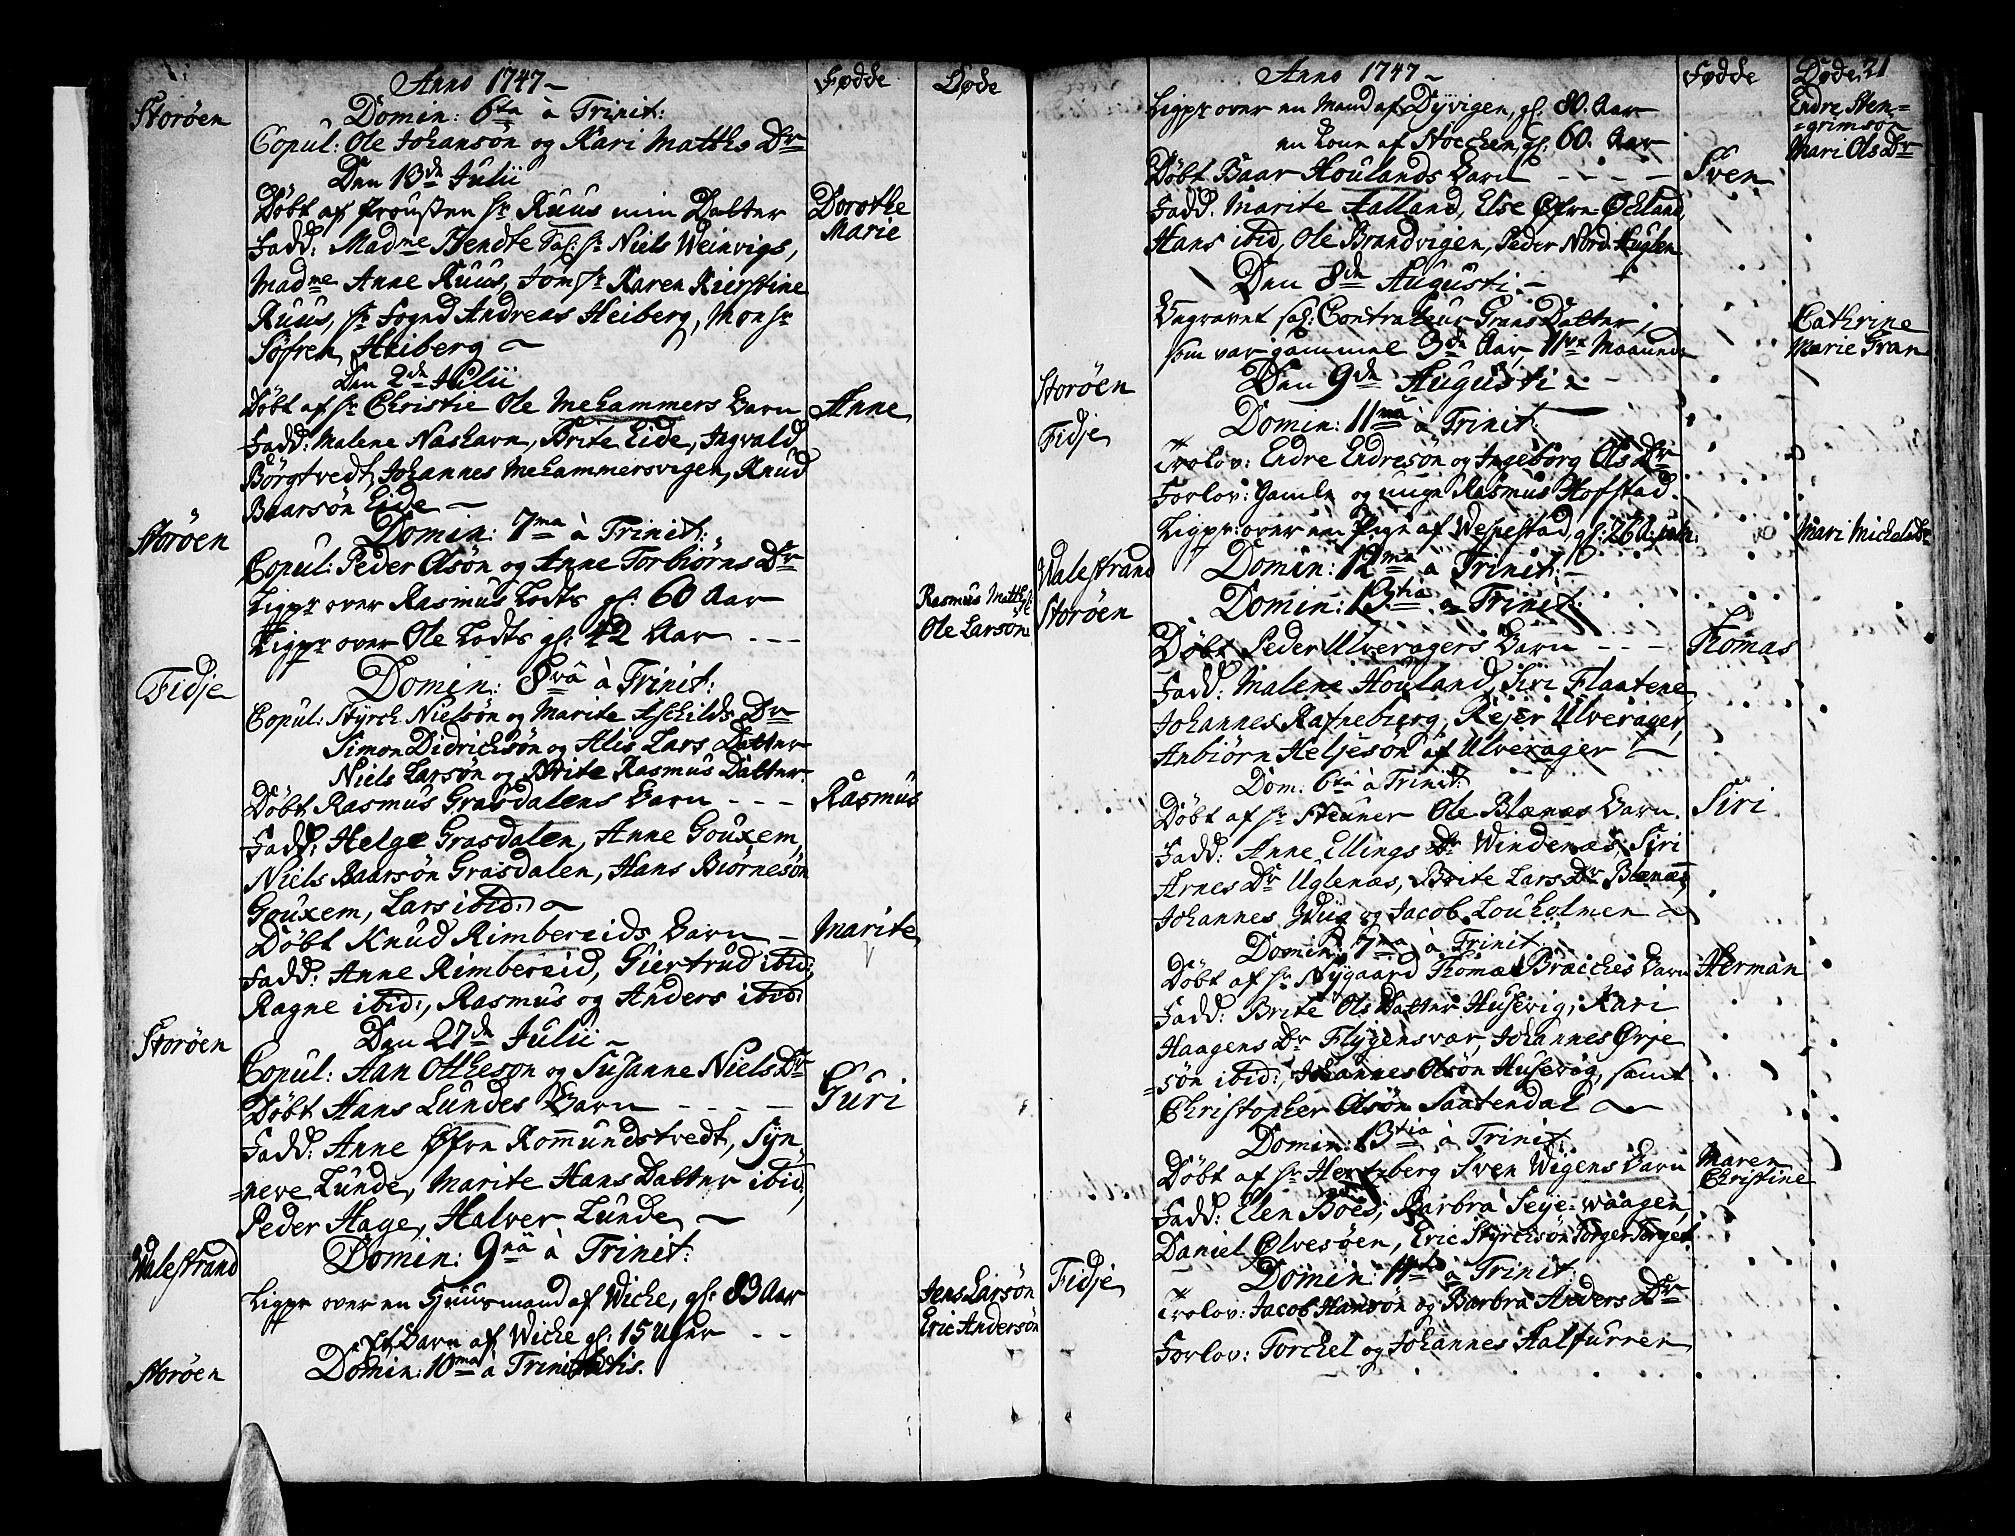 Anno 1747
Fødde
Døde
Storøen
Domin: 6ta à Trinit:
Copul: Ole Johansön og Kari Matths Dr
Den 13de Julii
Döbt af Prousten Hr Ruus min Datter
Dorothe
Marie
Fadd: Madme Bendte Sal: Hr Niels Weinvigs,
Madme Anne Ruus, Jomfr Karen Kierstine
Ruus, Hr Fogd Andreas Heiberg, Monsr
Söfren Heiberg
Den 2de Julii
Döbt af Hr Christie Ole Mehammers Barn
Anne
Fadd: Malene Nashavn, Brite Eide, Ingvald
Börgtvedt, Johannes Mehammersvigen, Knud
Baarsön Eide
Storøen
Domin: 7ma à Trinit:
Copul: Peder Olsön og Anne Torbiörns Dr
Ligpr over Rasmus Lodts gl: 60 Aar
Rasmus Matths
Ligpr over Ole Lodts gl: 42 Aar
Ole Larsön
Fidje
Domin: 8va à Trinit:
Copul: Styrch Nielsön og Marite Aschilds Dr
Simon Didrichsön og Alis Lars Datter
Niels Larsön og Brite Rasmus Datter
Döbt Rasmus Grasdalens Barn
Rasmus
Fadd: Helge Grasdalen, Anne Gouxem,
Niels Baarsön Grasdalen, Hans Biörnesön
Gouxem, Lars ibid:
Döbt Knud Rimbereids Barn
Marite
Fadd: Anne Rimbereid, Giertrud ibid:,
Ragne ibid:, Rasmus og Anders ibid:
Storøen
Den 27de Julii
Copul: Aan Ottheson og Susanne Niels Dr
Döbt Hans Lundes Barn
Guri
Fadd: Anne Øfre Rommundstvedt, Syn
=neve Lunde, Marite Hans Datter ibid,
Peder Hage, Halver Lunde
Walestrand
Domin: 9na à Trinit:
Ligpr over en Huusmand af Wiche, gl: 83 Aar
Jens Larsön
Et Barn af Wiche gl: 15 Uger
Eric Andersön
Storøen
Domin: 10ma à Trinitatis.
Anno 1747
Fødde
Døde 21
Ligpr over en Mand af Dyvigen, gl: 80 Aar
Endre Sten=
=grimsø
en Kone af Nocken, gl: 60 Aar
Mari Ols Dr
Döbt Baar Houlands Barn
Sven
Fadd: Marite Falland, Else Øfre Økland,
Hans ibid, Ole Brandvigen, Peder Nord-Huglen
Den 8de Augusti
Begravet sal: Contraheur Grans Datter
Cathrine
som var gammel 3de Aar, 11ve Maaneder
Marie Gran
Storøen
Den 9de Augusti
Fidje
Domin: 11ma à Trinit:
Trolov: Endre Endresön og Ingeborg Ols Dr
Forlov: Gamle og unge Rasmus Hofstad
Ligpr: over en Pige af Wespestad, gl: 26
Mari Michels Dr
Walestrand
Domin: 12ma à Trinit:
Storøen
Domin: 13tia à Trinit:
Döbt Peder Ulveragers Barn
Thomas
Fadd: Malene Houland, Siri Flaatene
Johannes Rafneberg, Rejer Ulverager,
Anbiörn Heljesön af Ulverager
Dom: 6ta à Trinit:
Döbt af Hr Stenner Ole Blænæs Barn
Siri
Fadd: Anne Ellings Dr Windenæs, Siri
Arnes Dr Uglenæs, Brite Lars Dr Blænæs,
Johannes Wiig og Jacob Louholmen
Domin: 7ma à Trinit
Döbt af Hr Nygaard Thomas Bræckes Barn
Herman
Fadd: Brite Ols Datter Husevig, Kari
Haagens Dr Flygensvær, Johannes Ørje
=sön ibid:, Johannes Olsön Husevog, samt
Christopher Olsön Saatendal
Domin: 13tia à Trinit:
Döbt af Hr Hertzberg Sven Wigens Barn
Maren
Christine
Fadd: Elen Boes, Barbra Seje-waagen,
Daniel Ølvesöen, Eric Styrchsön Torger Torget
Fidje
Domin: 14ta à Trinit:
Trolov: Jacob Hansön og Barbra Anders Dr
Forlov: Torchel og Johannes Halfurren